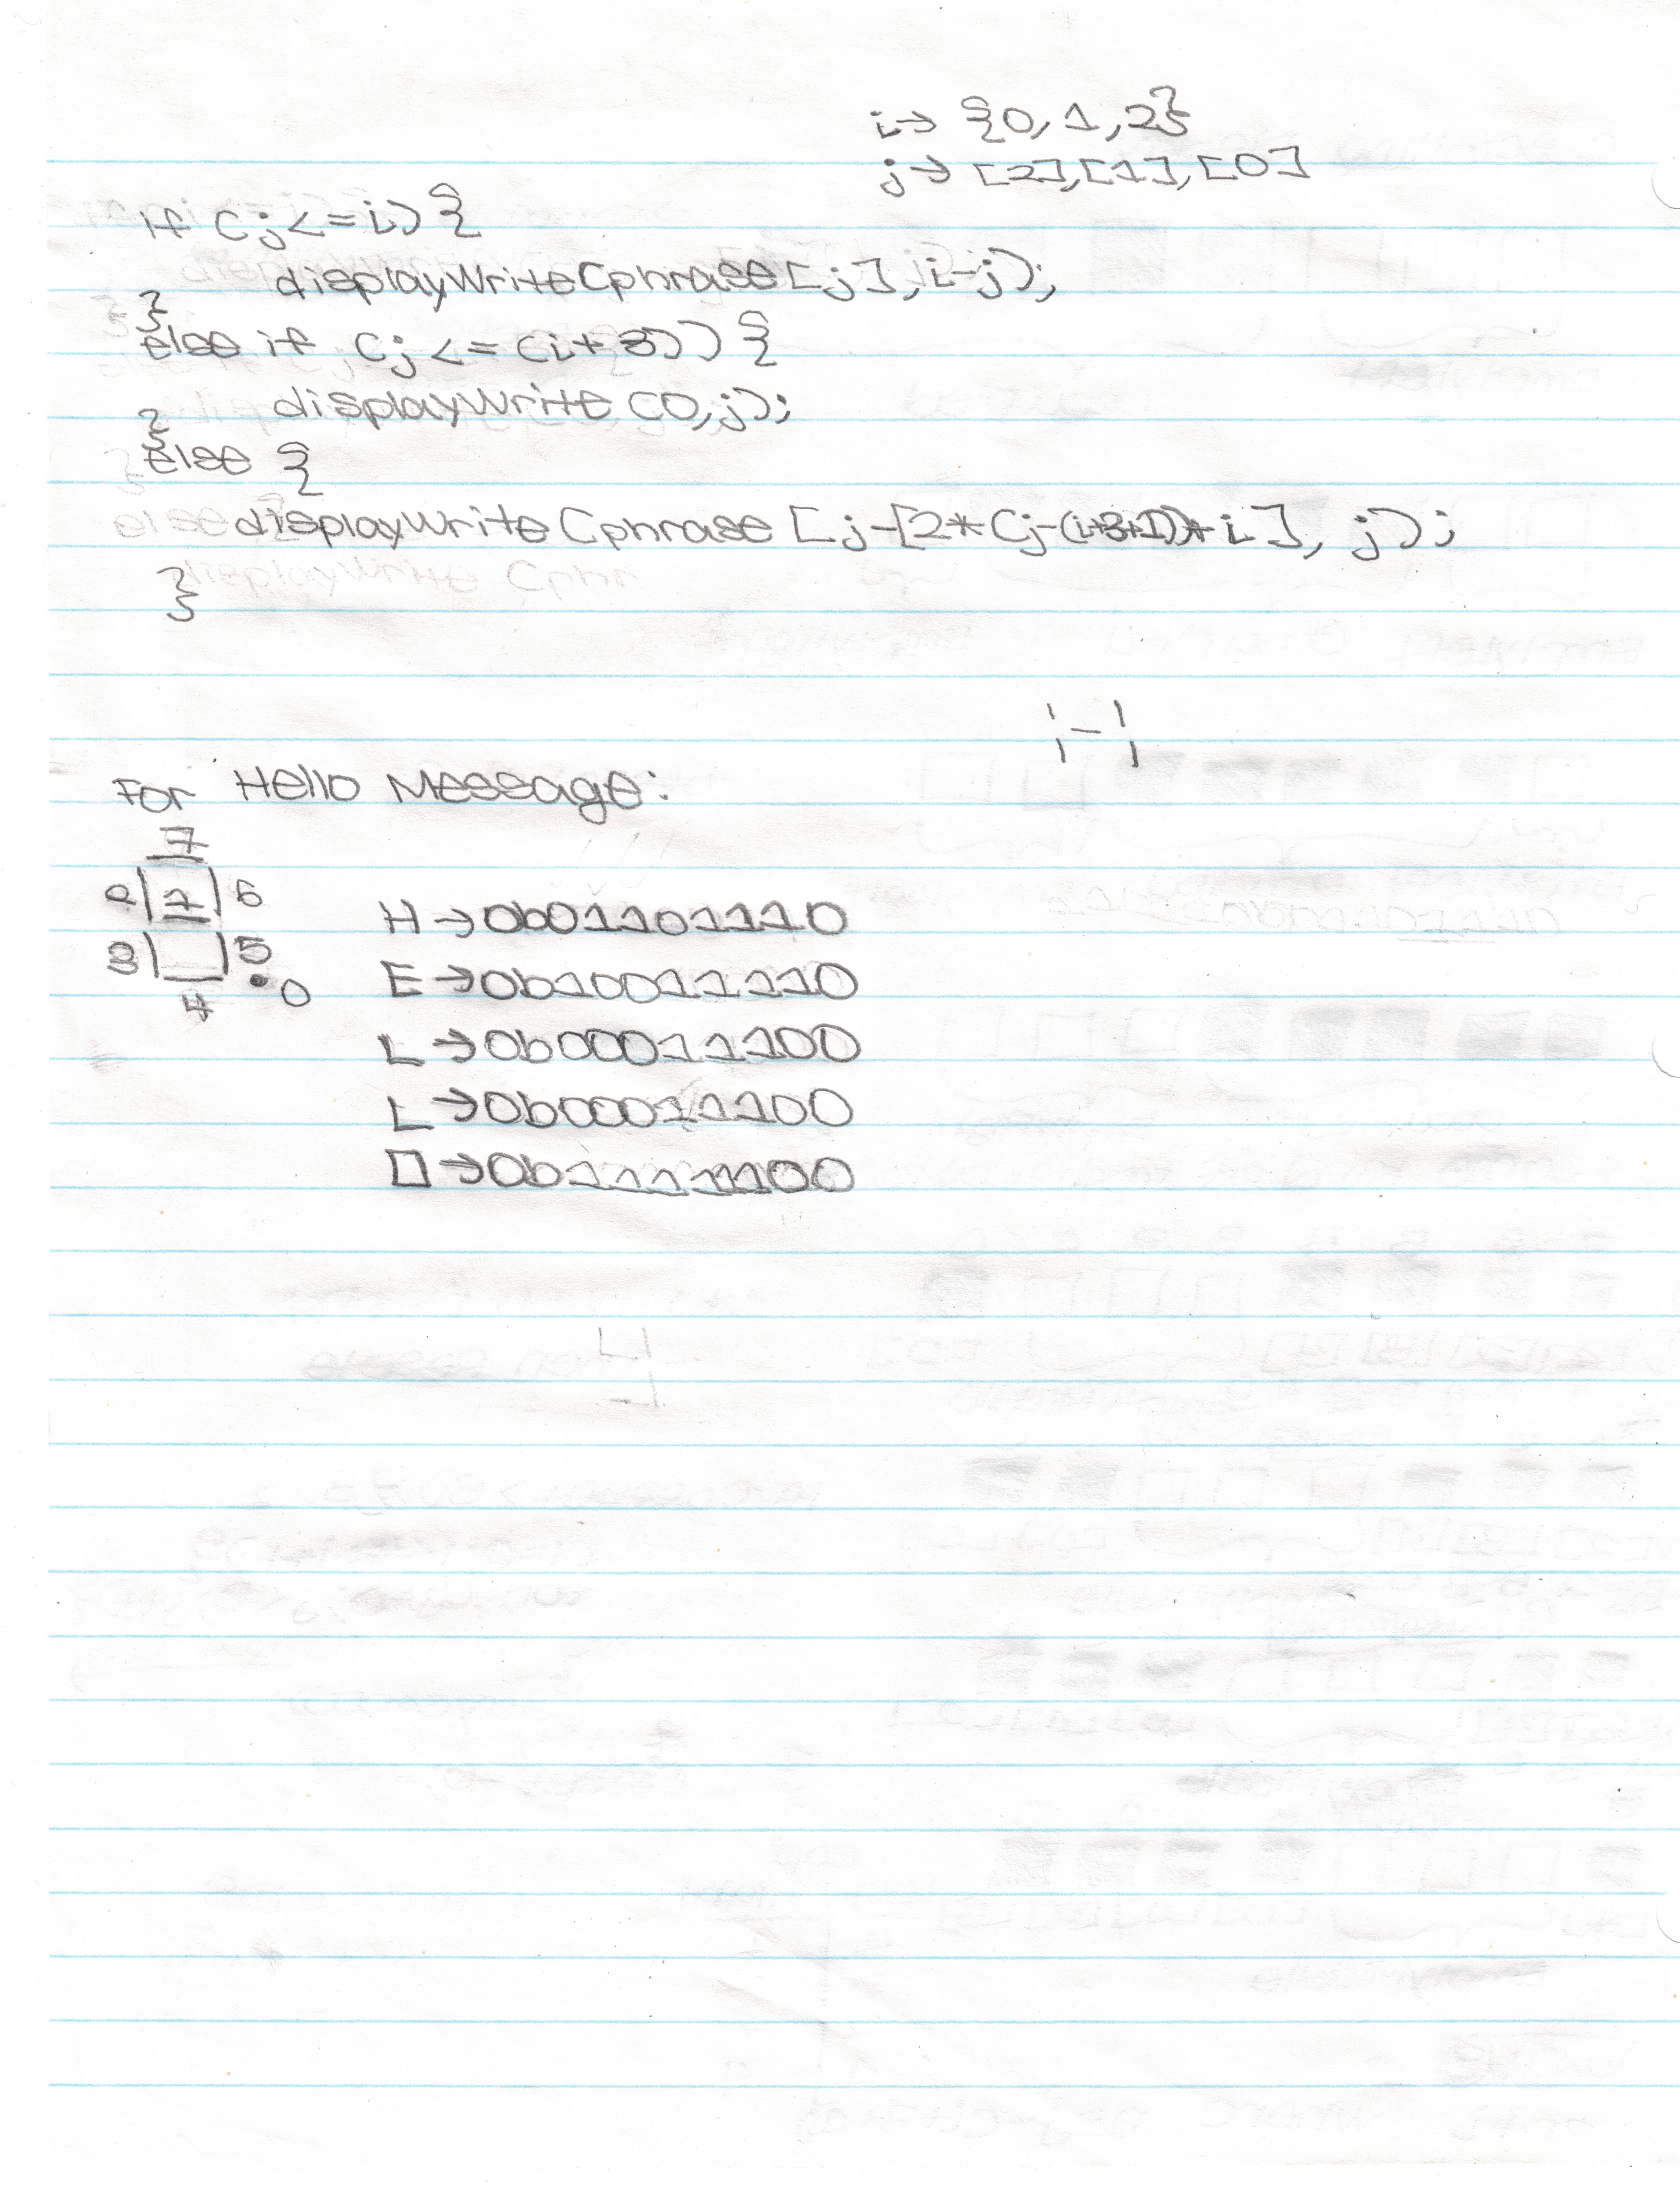 i→ {0,1,2}
j→ [2],[1],[0]
if (j<=i){
displayWrite(phrase[j],i-j);
}
else if (j<=(i+3)){
displayWrite(0,j);
}
else {
displayWrite(phrase[j-[2*(j-(i+3+1))+i], j);
}
For Hello Message:
7
2 1 6
3 5
4 0
H→0b01101110
E→0b10011110
L→0b00011100
L→0b00011100
O→0b11111100